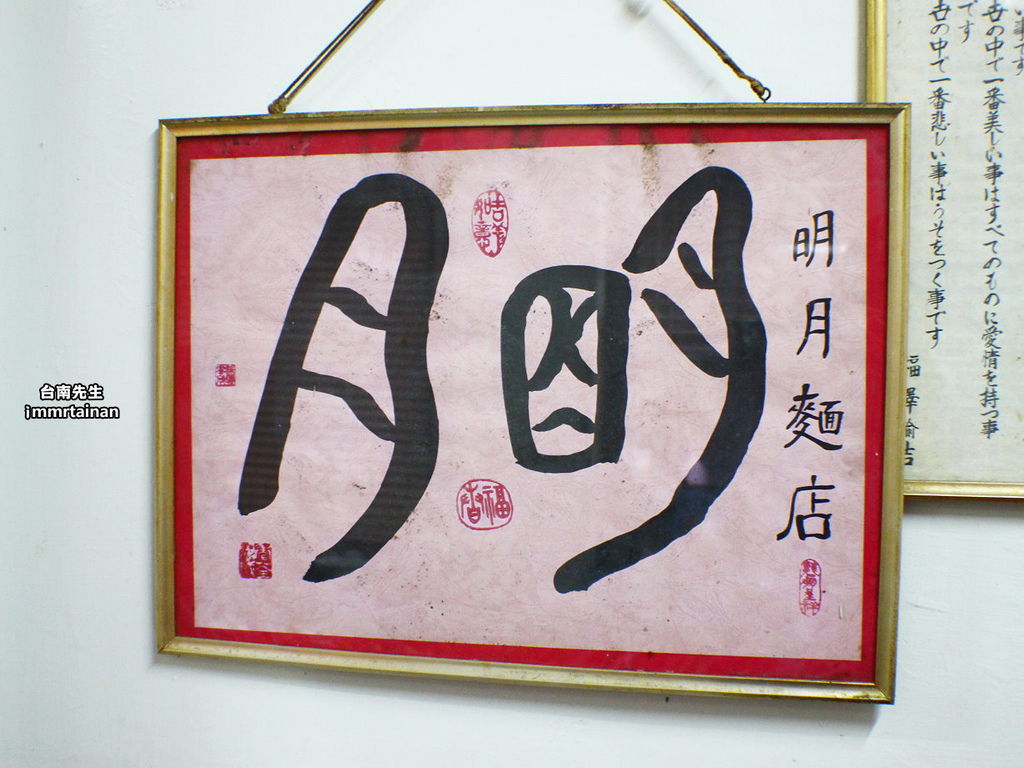 明月麵店
明月
吉祥如意
台南先生
immrtainan
事です
世の中で一番美しい事はすべてのものに愛情を持つ事
です
世の中で一番悲しい事はうそをつく事です
福澤諭吉